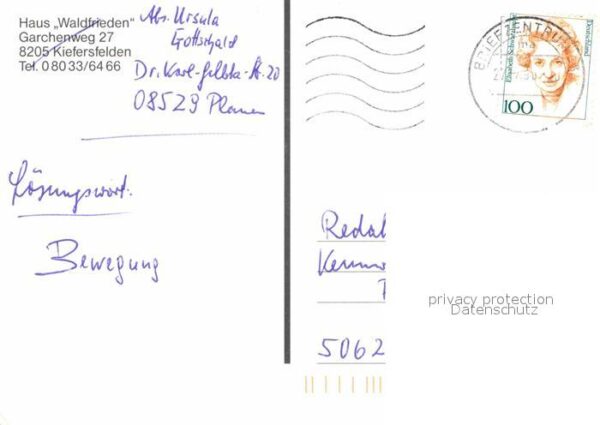 Haus „Waldfrieden“
Garchenweg 27
8205 Kiefersfelden
Tel. 0 80 33/64 66
Abs. Ursula
Gottschald
Dr. Karl-
08529 Plauen
Lösungswort:
Bewegung
BRIEFZENTRUM
Deutschland
100
Redak
5062
privacy protection
Datenschutz